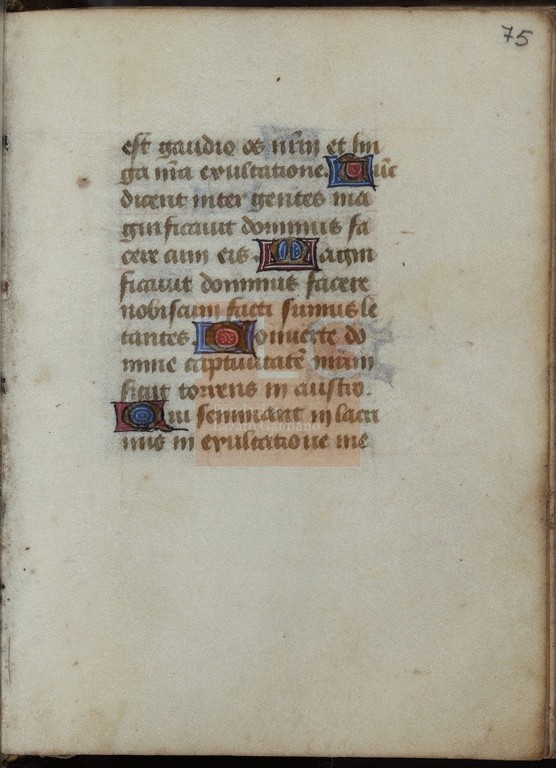 75
est gaudio os nr̄m et lin
gua nr̄a exultatione. Tūc
dicent inter gentes ma
gnificauit dominus fa
cere cum eis. Magni
ficauit dominus facere
nobiscum facti sumus le
tantes. Conuerte do
mine captiuitatē nram
sicut torrens in austro.
Qui seminant in lacri
mis in exultatione me